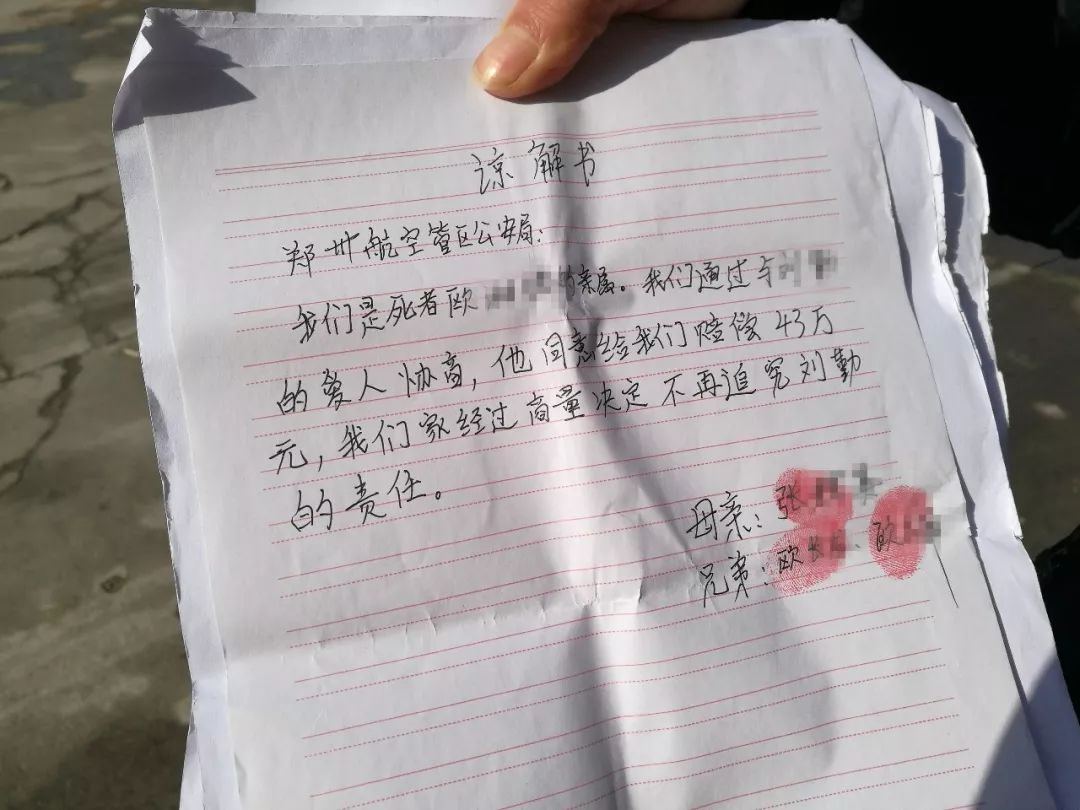 谅解书
郑州航空管区公安局：
我们是死者欧 的亲属。我们通过与刘
的爱人协商，他同意给我们赔偿43万
元，我们家经过商量决定不再追究刘勤
的责任。
母亲：张
兄弟：欧 、欧